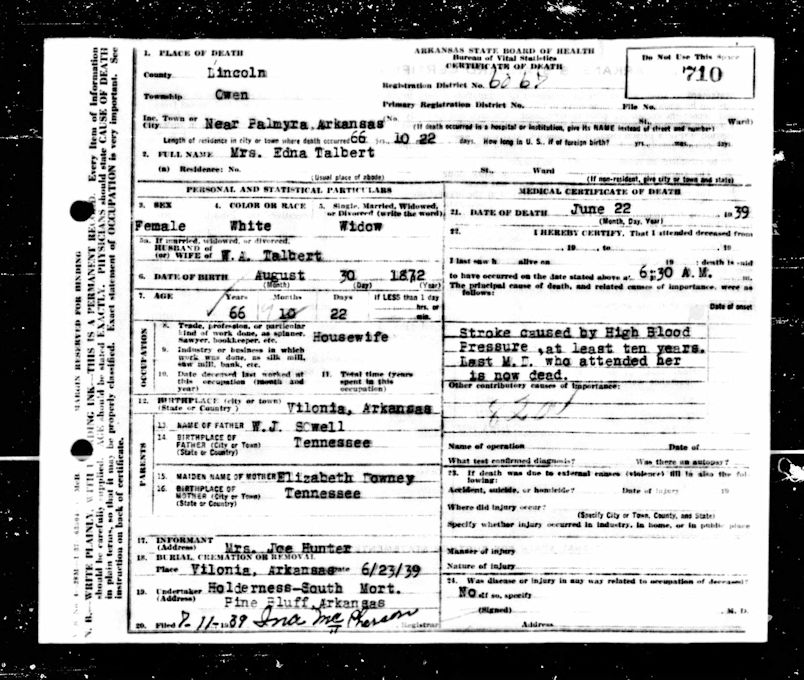 ARKANSAS STATE BOARD OF HEALTH
Bureau of Vital Statistics
CERTIFICATE OF DEATH
Do Not Use This Space
710
1. PLACE OF DEATH
County Lincoln
Township Owen
Registration District No.
Primary Registration District No.
File No.
Inc. Town or City Near Palmyra, Arkansas No. St., Ward)
(If death occurred in a hospital or institution, give its NAME instead of street and number)
Length of residence in city or town where death occurred 66 yrs. 10 mos. 22 days. How long in U. S., if of foreign birth? yrs. mos. days
2. FULL NAME Mrs. Edna Talbert
(a) Residence: No. St., Ward
(Usual place of abode) (If non-resident, give city or town and state)
PERSONAL AND STATISTICAL PARTICULARS
3. SEX 4. COLOR OR RACE 5. Single, Married, Widowed, or Divorced (write the word)
Female White Widow
5a. If married, widowed, or divorced,
HUSBAND of
(or) WIFE of W.A. Talbert
6. DATE OF BIRTH August 30 1872
(Month) (Day) (Year)
7. AGE Years Months Days If LESS than 1 day
hrs. or min.
66 10 22
OCCUPATION
8. Trade, profession, or particular kind of work done, as spinner, Sawyer, bookkeeper, etc. Housewife
9. Industry or business in which work was done, as silk mill, saw mill, bank, etc.
10. Date deceased last worked at this occupation (month and year)
11. Total time (years spent in this occupation)
12. BIRTHPLACE (city or town)
(State or Country) Vilonia, Arkansas
PARENTS
13. NAME OF FATHER W.J. SOwell
14. BIRTHPLACE OF FATHER (City or Town) Tennessee
(State or Country)
15. MAIDEN NAME OF MOTHER Elizabeth Downey
16. BIRTHPLACE OF MOTHER (City or Town) Tennessee
(State or Country)
17. INFORMANT
(Address) Mrs. Joe Hunter
18. BURIAL, CREMATION OR REMOVAL
Place Vilonia, Arkansas Date 6/23/39
19. Undertaker Holderness-South Mort.
(Address) Pine Bluff, Arkansas
20. Filed 7-11-1939 Ina McPherson Registrar
MEDICAL CERTIFICATE OF DEATH
21. DATE OF DEATH June 22 1939
(Month, Day, Year)
22. I HEREBY CERTIFY, That I attended deceased from
, 19 , to , 19
I last saw h alive on , 19 ; death is said
to have occurred on the date stated above at 6:30 A.M. m.
The principal cause of death, and related causes of importance, were as follows:
Date of onset
Stroke caused by High Blood
Pressure , at least ten years.
Last M.D. who attended her
is now dead.
Other contributory causes of importance:
Name of operation Date of
What test confirmed diagnosis? Was there an autopsy?
23. If death was due to external causes (violence) fill in also the following:
Accident, suicide, or homicide? Date of injury 19
Where did injury occur?
(Specify City or Town, County, and State)
Specify whether injury occurred in industry, in home, or in public place
Manner of injury
Nature of injury
24. Was disease or injury in any way related to occupation of deceased?
No. If so, specify
(Signed) M. D.
Address
MARGIN RESERVED FOR BINDING